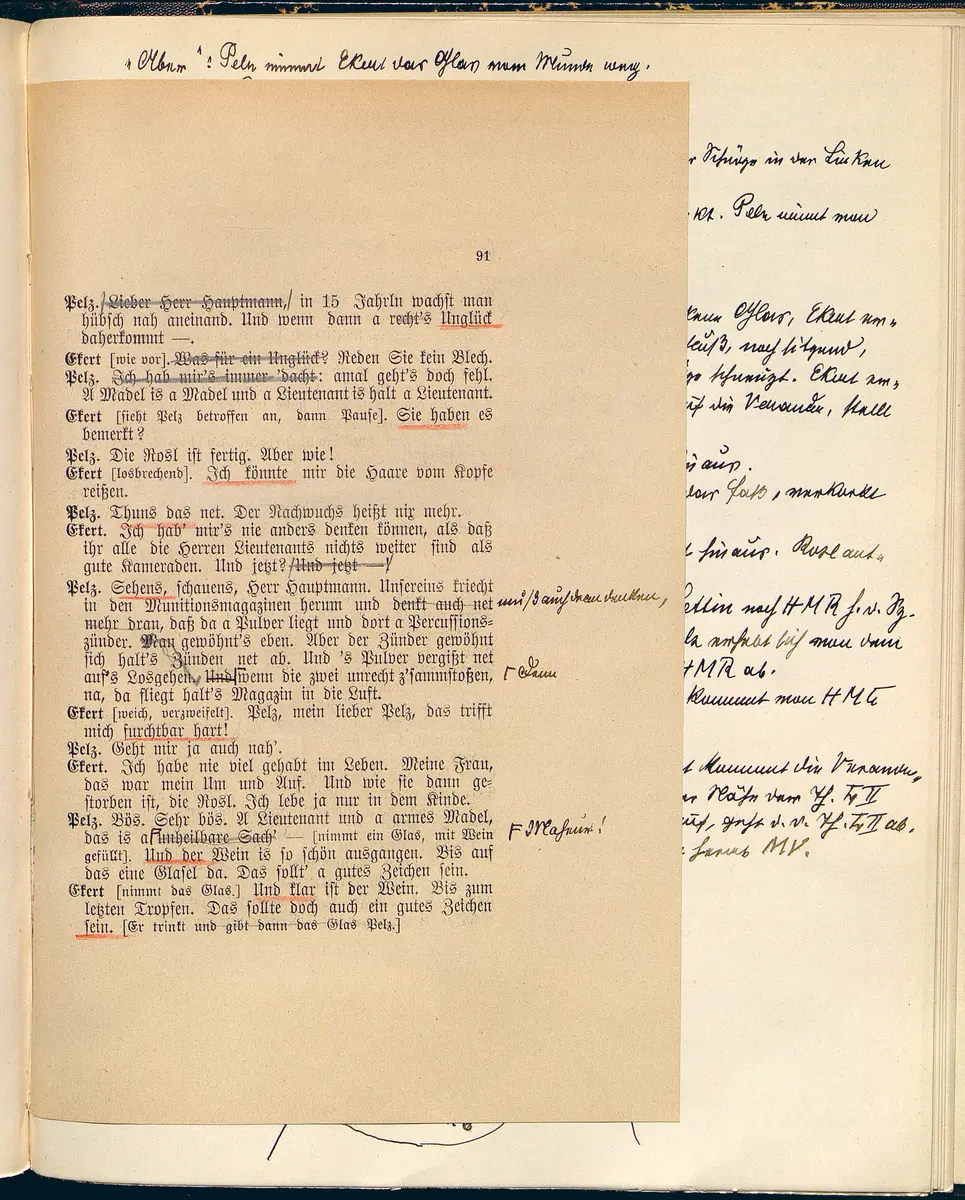 „Aber": Pelz nimmt Ekert das Glas vom Munde weg.
91
Pelz. Lieber Herr Hauptmann, in 15 Jahrln wachst man
hübsch nah aneinand. Und wenn dann a recht's Unglück
daherkommt —.
Ekert [wie vor]. Was für ein Unglück? Reden Sie kein Blech.
Pelz. Ich hab mir's immer 'dacht: amal geht's doch fehl.
A Madel is a Madel und a Lieutenant is halt a Lieutenant.
Ekert [sieht Pelz betroffen an, dann Pause]. Sie haben es
bemerkt?
Pelz. Die Rosl ist fertig. Aber wie!
Ekert [losbrechend]. Ich könnte mir die Haare vom Kopfe
reißen.
Pelz. Thuns das net. Der Nachwuchs heißt nix mehr.
Ekert. Ich hab' mir's nie anders denken können, als daß
ihr alle die Herren Lieutenants nichts weiter sind als
gute Kameraden. Und jetzt? Und jetzt —!
Pelz. Sehens, schauens, Herr Hauptmann. Unsereins kriecht
in den Munitionsmagazinen herum und denkt auch net
muß auch dran denken,
mehr dran, daß da a Pulver liegt und dort a Percussions-
zünder. Man gewöhnt's eben. Aber der Zünder gewöhnt
sich halt's Zünden net ab. Und 's Pulver vergißt net
auf's Losgehen. Und wenn die zwei unrecht z'sammstoßen,
Denn
na, da fliegt halt's Magazin in die Luft.
Ekert [weich, verzweifelt]. Pelz, mein lieber Pelz, das trifft
mich furchtbar hart!
Pelz. Geht mir ja auch nah'.
Ekert. Ich habe nie viel gehabt im Leben. Meine Frau,
das war mein Um und Auf. Und wie sie dann ge-
storben ist, die Rosl. Ich lebe ja nur in dem Kinde.
Pelz. Bös. Sehr bös. A Lieutenant und a armes Madel,
das is a unheilbare Sach' — [nimmt ein Glas, mit Wein
Malheur!
gefüllt]. Und der Wein is so schön ausgangen. Bis auf
das eine Glasel da. Das sollt' a gutes Zeichen sein.
Ekert [nimmt das Glas.] Und klar ist der Wein. Bis zum
letzten Tropfen. Das sollte doch auch ein gutes Zeichen
sein. [Er trinkt und gibt dann das Glas Pelz.]
Schürze in der Linken
kt. Pelz nimmt von
Glas, Ekert
noch sitzend,
schneuzt. Ekert
die Veranda, stellt
aus.
das Faß, verkorkt
hinaus.
nach HMR
erhebt sich von dem
HMR ab.
kommt von HML
kommt die
Nähe der
ab.
MV.